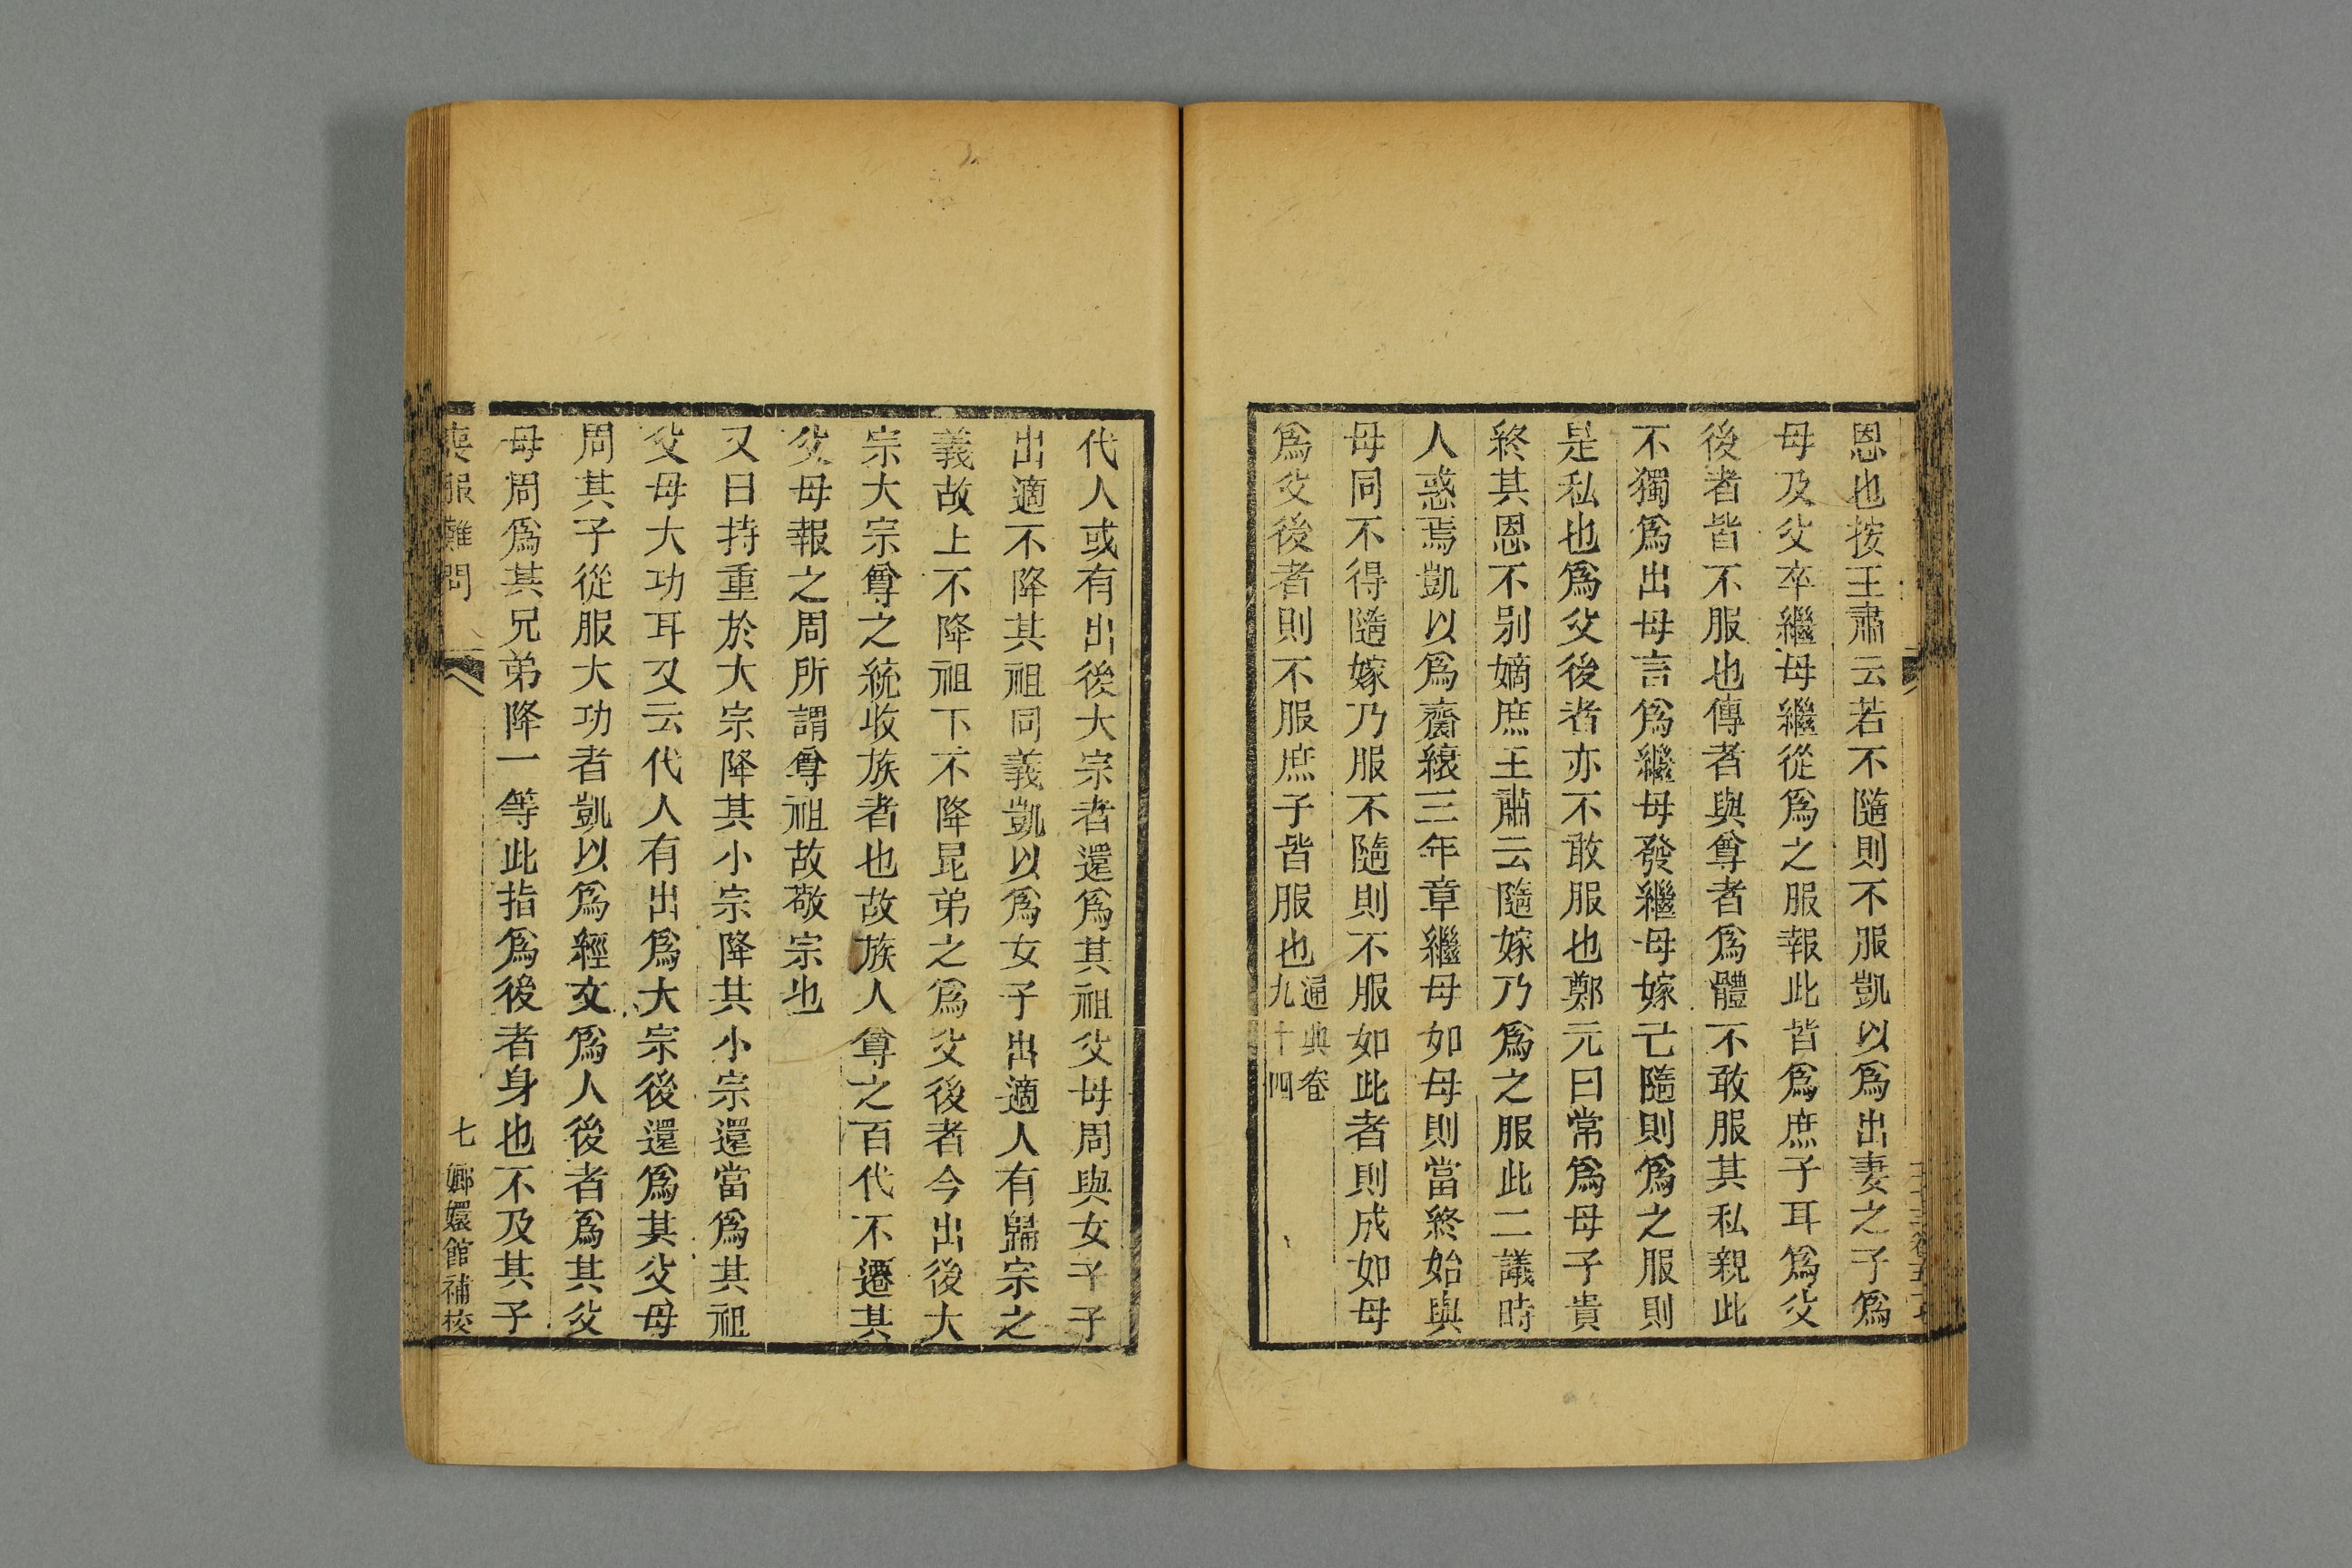 恩也按王肅云若不隨則不服凱以爲出妻之子爲
母及父卒繼母繼從爲之服報此皆爲庶子耳爲父
後者皆不服也傳者與尊者爲體不敢服其私親此
不獨爲出母言爲繼母發繼母嫁已隨則爲之服則
是私也爲父後者亦不敢服也鄭元曰常爲母子貴
終其恩不别嫡庶王肅云隨嫁乃爲之服此二議時
人惑焉凱以爲齊縗三年章繼母如母則當終始與
母同不得隨嫁乃服不隨則不服如此者則成如母
爲父後者則不服庶子皆服也通典卷
九十四
代人或有出後大宗者還爲其祖父母周與女子子
出適不降其祖同義凱以爲女子出適人有歸宗之
義故上不降祖下不降昆弟之爲父後者今出後大
宗大宗尊之統收族者也故族人尊之百代不遷其
父母報之周所謂尊祖故敬宗也
又曰持重於大宗降其小宗降其小宗還當爲其祖
父母大功耳又云代人有出爲大宗後還爲其父母
周其子從服大功者凱以爲經文爲人後者爲其父
母周爲其兄弟降一等此指爲後者身也不及其子
喪服難問
七
嫏嬛館補校